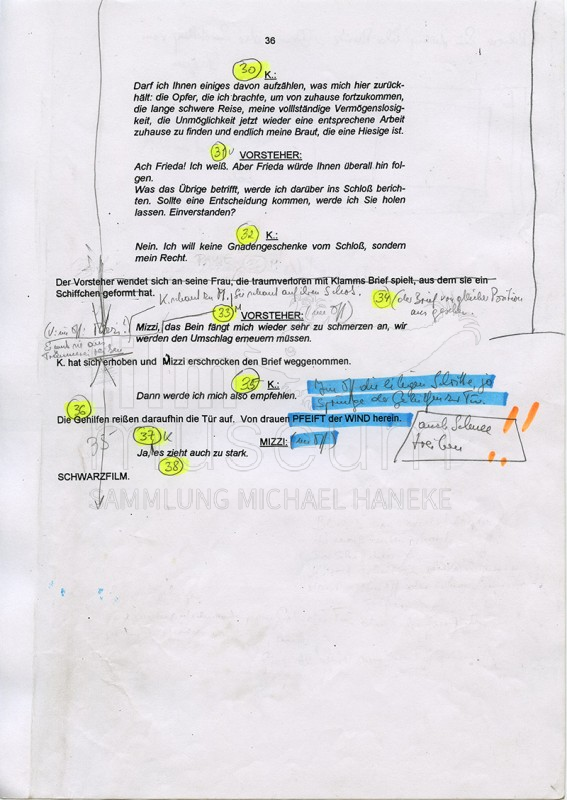 36
30 K.:
Darf ich Ihnen einiges davon aufzählen, was mich hier zurück-
hält: die Opfer, die ich brachte, um von zuhause fortzukommen,
die lange schwere Reise, meine vollständige Vermögenslosig-
keit, die Unmöglichkeit jetzt wieder eine entsprechene Arbeit
zuhause zu finden und endlich meine Braut, die eine Hiesige ist.
31 VORSTEHER:
Ach Frieda! Ich weiß. Aber Frieda würde Ihnen überall hin fol-
gen.
Was das Übrige betrifft, werde ich darüber ins Schloß berich-
ten. Sollte eine Entscheidung kommen, werde ich Sie holen
lassen. Einverstanden?
32 K.:
Nein. Ich will keine Gnadengeschenke vom Schloß, sondern
mein Recht.
Der Vorsteher wendet sich an seine Frau, die traumverloren mit Klamms Brief spielt, aus dem sie ein
Schiffchen geformt hat.
K. schaut zu M. Sie schaut auf ihren Schoß.
34 (der Brief von gleicher Position
aus gesehen)
33 M VORSTEHER:
(im Off)
Mizzi, das Bein fängt mich wieder sehr zu schmerzen an, wir
werden den Umschlag erneuern müssen.
K. hat sich erhoben und Mizzi erschrocken den Brief weggenommen.
35 K.:
Dann werde ich mich also empfehlen.
Im Off die eiligen Schritte,
der Gehilfen zur Tür.
36
Die Gehilfen reißen daraufhin die Tür auf. Von drauen PFEIFT der WIND herein.
auch Schnee
treiben
!!
37 K MIZZI: (im Off)
Ja, es zieht auch zu stark.
38
35
SCHWARZFILM.
film
museum
SAMMLUNG MICHAEL HANEKE